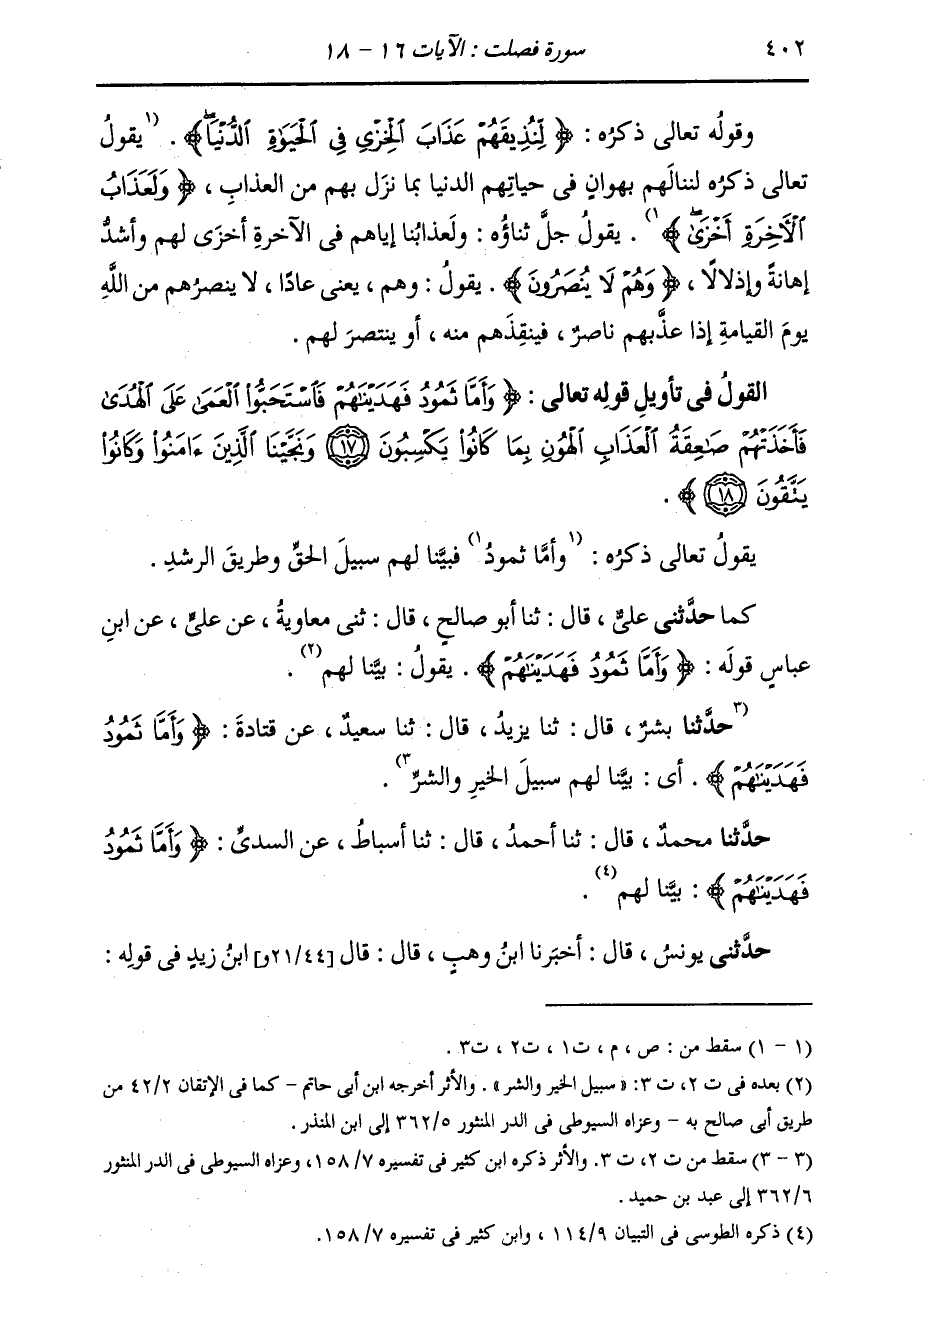 ٤٠٢ سورة فصلت : الآيات ١٦ - ١٨
وقولُه تعالى ذكرُه : ﴿ لِّنُذِيقَهُمْ عَذَابَ ٱلْخِزْىِ فِى ٱلْحَيَوٰةِ ٱلدُّنْيَاۖ ﴾ . (١يقولُ
تعالى ذكرُه لننالَهم بهوانٍ فى حياتِهم الدنيا بما نزَل بهم من العذابِ ، ﴿ وَلَعَذَابُ
ٱلْأَخِرَةِ أَخْزَىٰۖ ﴾١) . يقولُ جلَّ ثناؤُه : ولَعذابُنا إياهم فى الآخرةِ أخزَى لهم وأشدُّ
إهانةً وإذلالًا ، ﴿ وَهُمْ لَا يُنصَرُونَ ﴾ . يقولُ : وهم ، يعنى عادًا ، لا ينصرُهم من اللَّهِ
يومَ القيامةِ إذا عذَّبهم ناصرٌ ، فينقِذَهم منه ، أو ينتصرَ لهم .
القولُ فى تأويلِ قولِه تعالى : ﴿ وَأَمَّا ثَمُودُ فَهَدَيْنَٰهُمْ فَٱسْتَحَبُّوا۟ ٱلْعَمَىٰ عَلَى ٱلْهُدَىٰ
فَأَخَذَتْهُمْ صَٰعِقَةُ ٱلْعَذَابِ ٱلْهُونِ بِمَا كَانُوا۟ يَكْسِبُونَ ١٧ وَنَجَّيْنَا ٱلَّذِينَ ءَامَنُوا۟ وَكَانُوا۟
يَتَّقُونَ ١٨ ﴾ .
يقولُ تعالى ذكرُه : (١وأمَّا ثمودُ١) فبيَّنا لهم سبيلَ الحقِّ وطريقَ الرشدِ .
كما حدَّثنى علىٌّ ، قال : ثنا أبو صالحٍ ، قال : ثنى معاويةُ ، عن علىٍّ ، عن ابنِ
عباسٍ قولَه : ﴿ وَأَمَّا ثَمُودُ فَهَدَيْنَٰهُمْ ﴾ . يقولُ : بيَّنا لهم(٢) .
(٣حدَّثنا بشرٌ ، قال : ثنا يزيدُ ، قال : ثنا سعيدٌ ، عن قتادةَ : ﴿ وَأَمَّا ثَمُودُ
فَهَدَيْنَٰهُمْ ﴾ . أى : بيَّنا لهم سبيلَ الخيرِ والشرِّ٣) .
حدَّثنا محمدٌ ، قال : ثنا أحمدُ ، قال : ثنا أسباطُ ، عن السدىِّ : ﴿ وَأَمَّا ثَمُودُ
فَهَدَيْنَٰهُمْ ﴾ : بيَّنا لهم(٤) .
حدَّثنى يونسُ ، قال : أخبَرنا ابنُ وهبٍ ، قال : قال [٢١/٤٤و] ابنُ زيدٍ فى قولِه :
(١ - ١) سقط من : ص ، م ، ت١ ، ت٢ ، ت٣ .
(٢) بعده فى ت ٢، ت ٣: « سبيل الخير والشر» . والأثر أخرجه ابن أبى حاتم - كما فى الإتقان ٤٢/٢ من
طريق أبى صالح به - وعزاه السيوطى فى الدر المنثور ٣٦٢/٥ إلى ابن المنذر .
(٣ - ٣) سقط من ت ٢، ت ٣. والأثر ذكره ابن كثير فى تفسيره ١٥٨/٧، وعزاه السيوطى فى الدر المنثور
٣٦٢/٦ إلى عبد بن حميد .
(٤) ذكره الطوسى فى التبيان ١١٤/٩ ، وابن كثير فى تفسيره ١٥٨/٧.